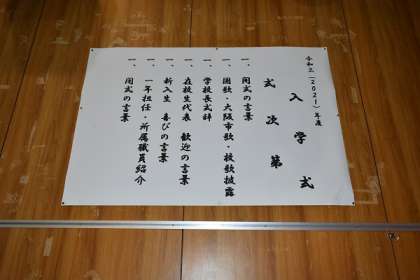 令和三（2021）年度
入学式
式次第
一、開式の言葉
一、国歌・大阪市歌・校歌披露
一、学校長式辞
一、在校生代表　歓迎の言葉
一、新入生　喜びの言葉
一、一年担任・所属職員紹介
一、閉式の言葉